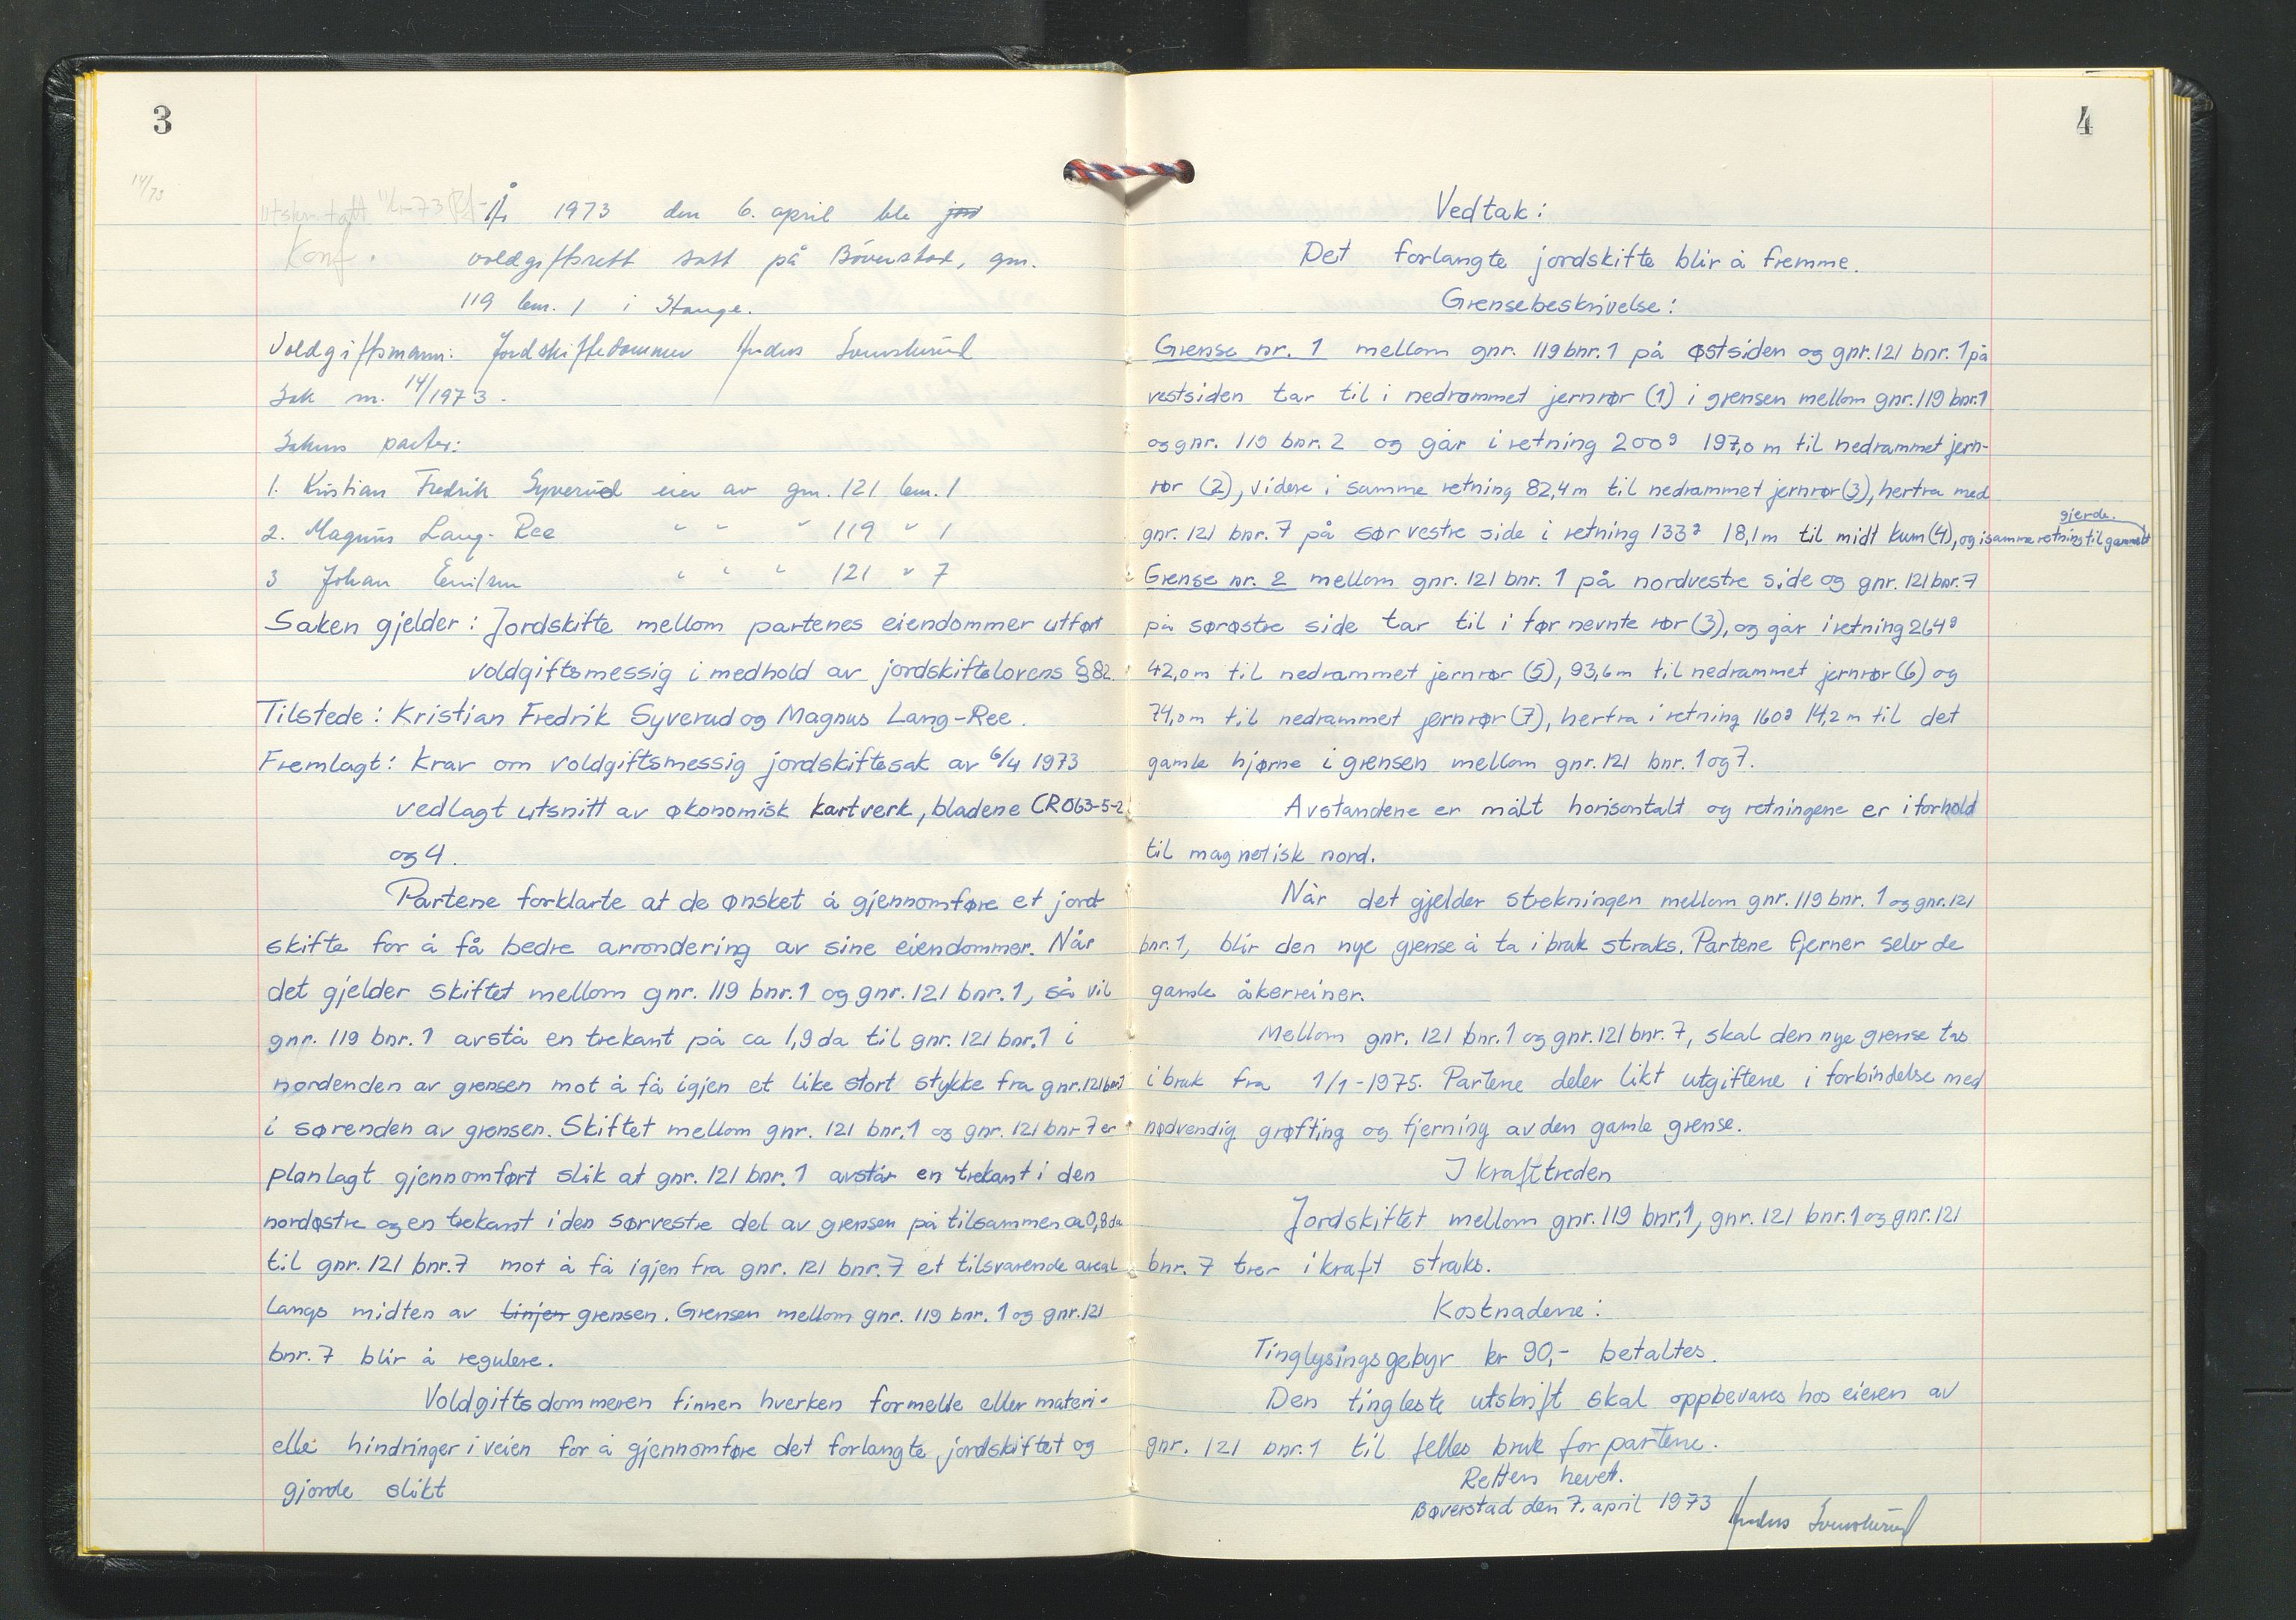 3
14/73
År 1973 den 6. april ble jord
Konf.
voldgiftsrett satt på Böverstad, gnr.
119 bnr. 1 i Stange.
Voldgiftsmann: Jordskiftedommer Anders Svenskerud
Sak nr. 14/1973.
Sakens parter:
1. Kristian Fredrik Syverud eier av gnr. 121 bnr. 1
2. Magnus Lang-Ree " " " 119 " 1
3 Johan Emilsen " " " 121 " 7
Saken gjelder: Jordskifte mellom partenes eiendommer utført
voldgiftsmessig i medhold av jordskiftelovens § 82.
Tilstede: Kristian Fredrik Syverud og Magnus Lang-Ree.
Fremlagt: Krav om voldgiftsmessig jordskiftesak av 6/4 1973
vedlagt utsnitt av økonomisk kartverk, bladene CR063-5-2
og 4.
Partene forklarte at de ønsket å gjennomføre et jord-
skifte for å få bedre arrondering av sine eiendommer. Når
det gjelder skiftet mellom gnr. 119 bnr. 1 og gnr. 121 bnr. 1, så vil
gnr. 119 bnr. 1 avstå en trekant på ca 1,9 da til gnr. 121 bnr. 1 i
nordenden av grensen mot å få igjen et like stort stykke fra gnr. 121 bnr. 1
i sørenden av grensen. Skiftet mellom gnr. 121 bnr. 1 og gnr. 121 bnr 7 er
planlagt gjennomført slik at gnr. 121 bnr. 1 avstår en trekant i den
nordøstre og en trekant i den sørvestre del av grensen på tilsammen ca 0,8 da
til gnr. 121 bnr. 7 mot å få igjen fra gnr. 121 bnr. 7 et tilsvarende areal
langs midten av linjen grensen. Grensen mellom gnr. 119 bnr. 1 og gnr. 121
bnr. 7 blir å regulere.
Voldgiftsdommeren finner hverken formelle eller materi-
elle hindringer i veien for å gjennomføre det forlangte jordskiftet og
gjorde slikt
4
Vedtak:
Det forlangte jordskifte blir å fremme.
Grensebeskrivelse:
Grense nr. 1 mellom gnr. 119 bnr. 1 på østsiden og gnr. 121 bnr. 1 på
vestsiden tar til i nedrammet jernrør (1) i grensen mellom gnr. 119 bnr. 1
og gnr. 119 bnr. 2 og går i retning 200g 197,0 m til nedrammet jern-
rør (2), videre i samme retning 82,4 m til nedrammet jernrør (3), herfra med
gnr. 121 bnr. 7 på sørvestre side i retning 133g 18,1 m til midt kum (4), og i samme retning til gammelt
gjerde.
Grense nr. 2 mellom gnr. 121 bnr. 1 på nordvestre side og gnr. 121 bnr. 7
på sørøstre side tar til i før nevnte rør (3), og går i retning 264g
42,0 m til nedrammet jernrør (5), 93,6 m til nedrammet jernrør (6) og
74,0 m til nedrammet jernrør (7), herfra i retning 160g 14,2 m til det
gamle hjørne i grensen mellom gnr. 121 bnr. 1 og 7.
Avstandene er målt horisontalt og retningene er i forhold
til magnetisk nord.
Når det gjelder strekningen mellom gnr. 119 bnr. 1 og gnr. 121
bnr. 1, blir den nye grense å ta i bruk straks. Partene fjerner selv de
gamle åkerreiner.
Mellom gnr. 121 bnr. 1 og gnr. 121 bnr. 7, skal den nye grense tas
i bruk fra 1/1-1975. Partene deler likt utgiftene i forbindelse med
nødvendig grøfting og fjerning av den gamle grense.
Ikrafttreden
Jordskiftet mellom gnr. 119 bnr. 1, gnr. 121 bnr. 1 og gnr. 121
bnr. 7 trer i kraft straks.
Kostnadene:
Tinglysingsgebyr kr 90,- betaltes.
Den tingleste utskrift skal oppbevares hos eieren av
gnr. 121 bnr. 1 til felles bruk for partene.
Retten hevet.
Bøverstad den 7. april 1973 Anders Svenskerud